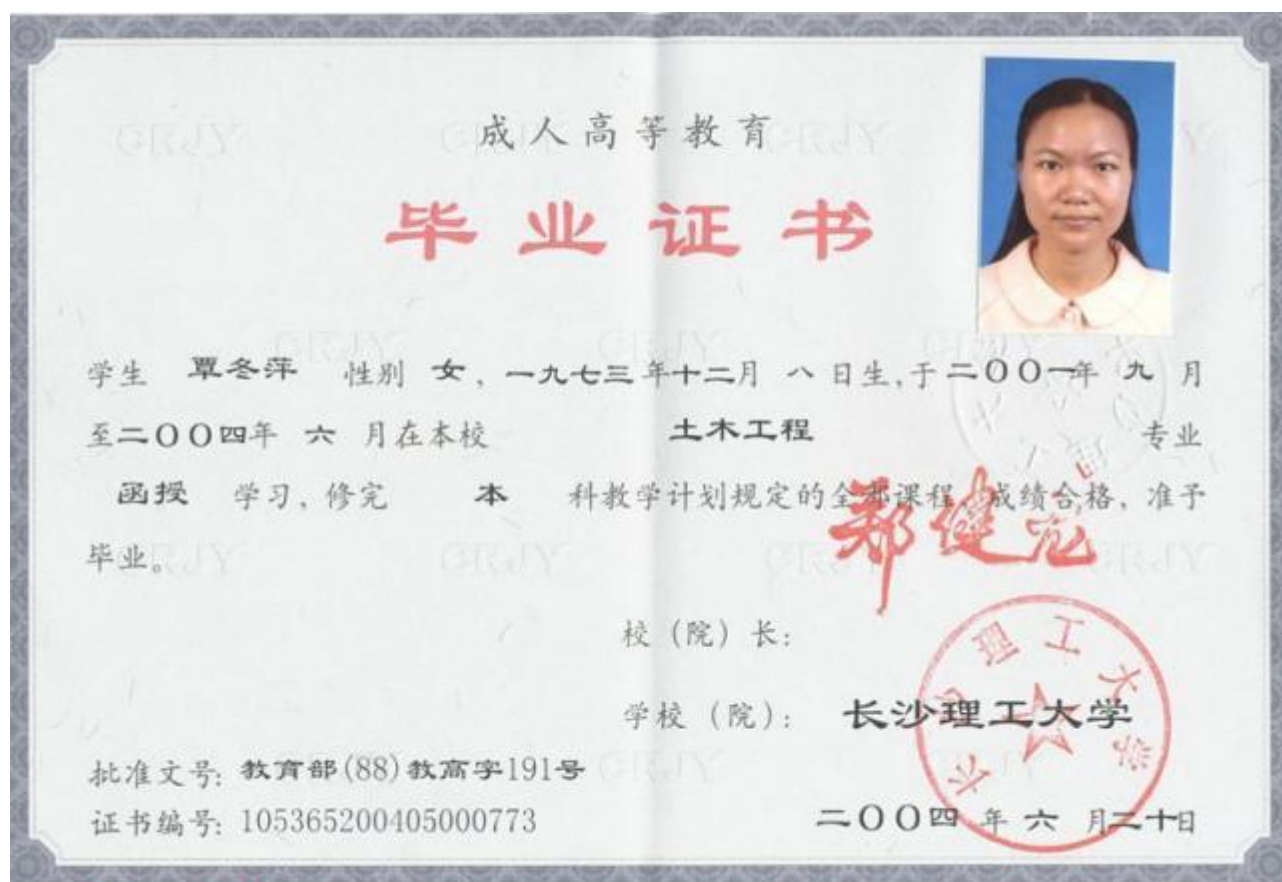 成人高等教育
毕业证书
学生 覃冬萍 性别 女，一九七三年十二月 八 日生,于二〇〇一年 九 月
至二〇〇四年 六 月在本校 土木工程 专业
函授 学习，修完 本 科教学计划规定的全部课程，成绩合格，准予
毕业。
郑健龙
校（院）长：
学校（院）： 长沙理工大学
长沙理工大学
批准文号: 教育部(88)教高字191号
证书编号: 105365200405000773
二〇〇四 年 六 月二十日